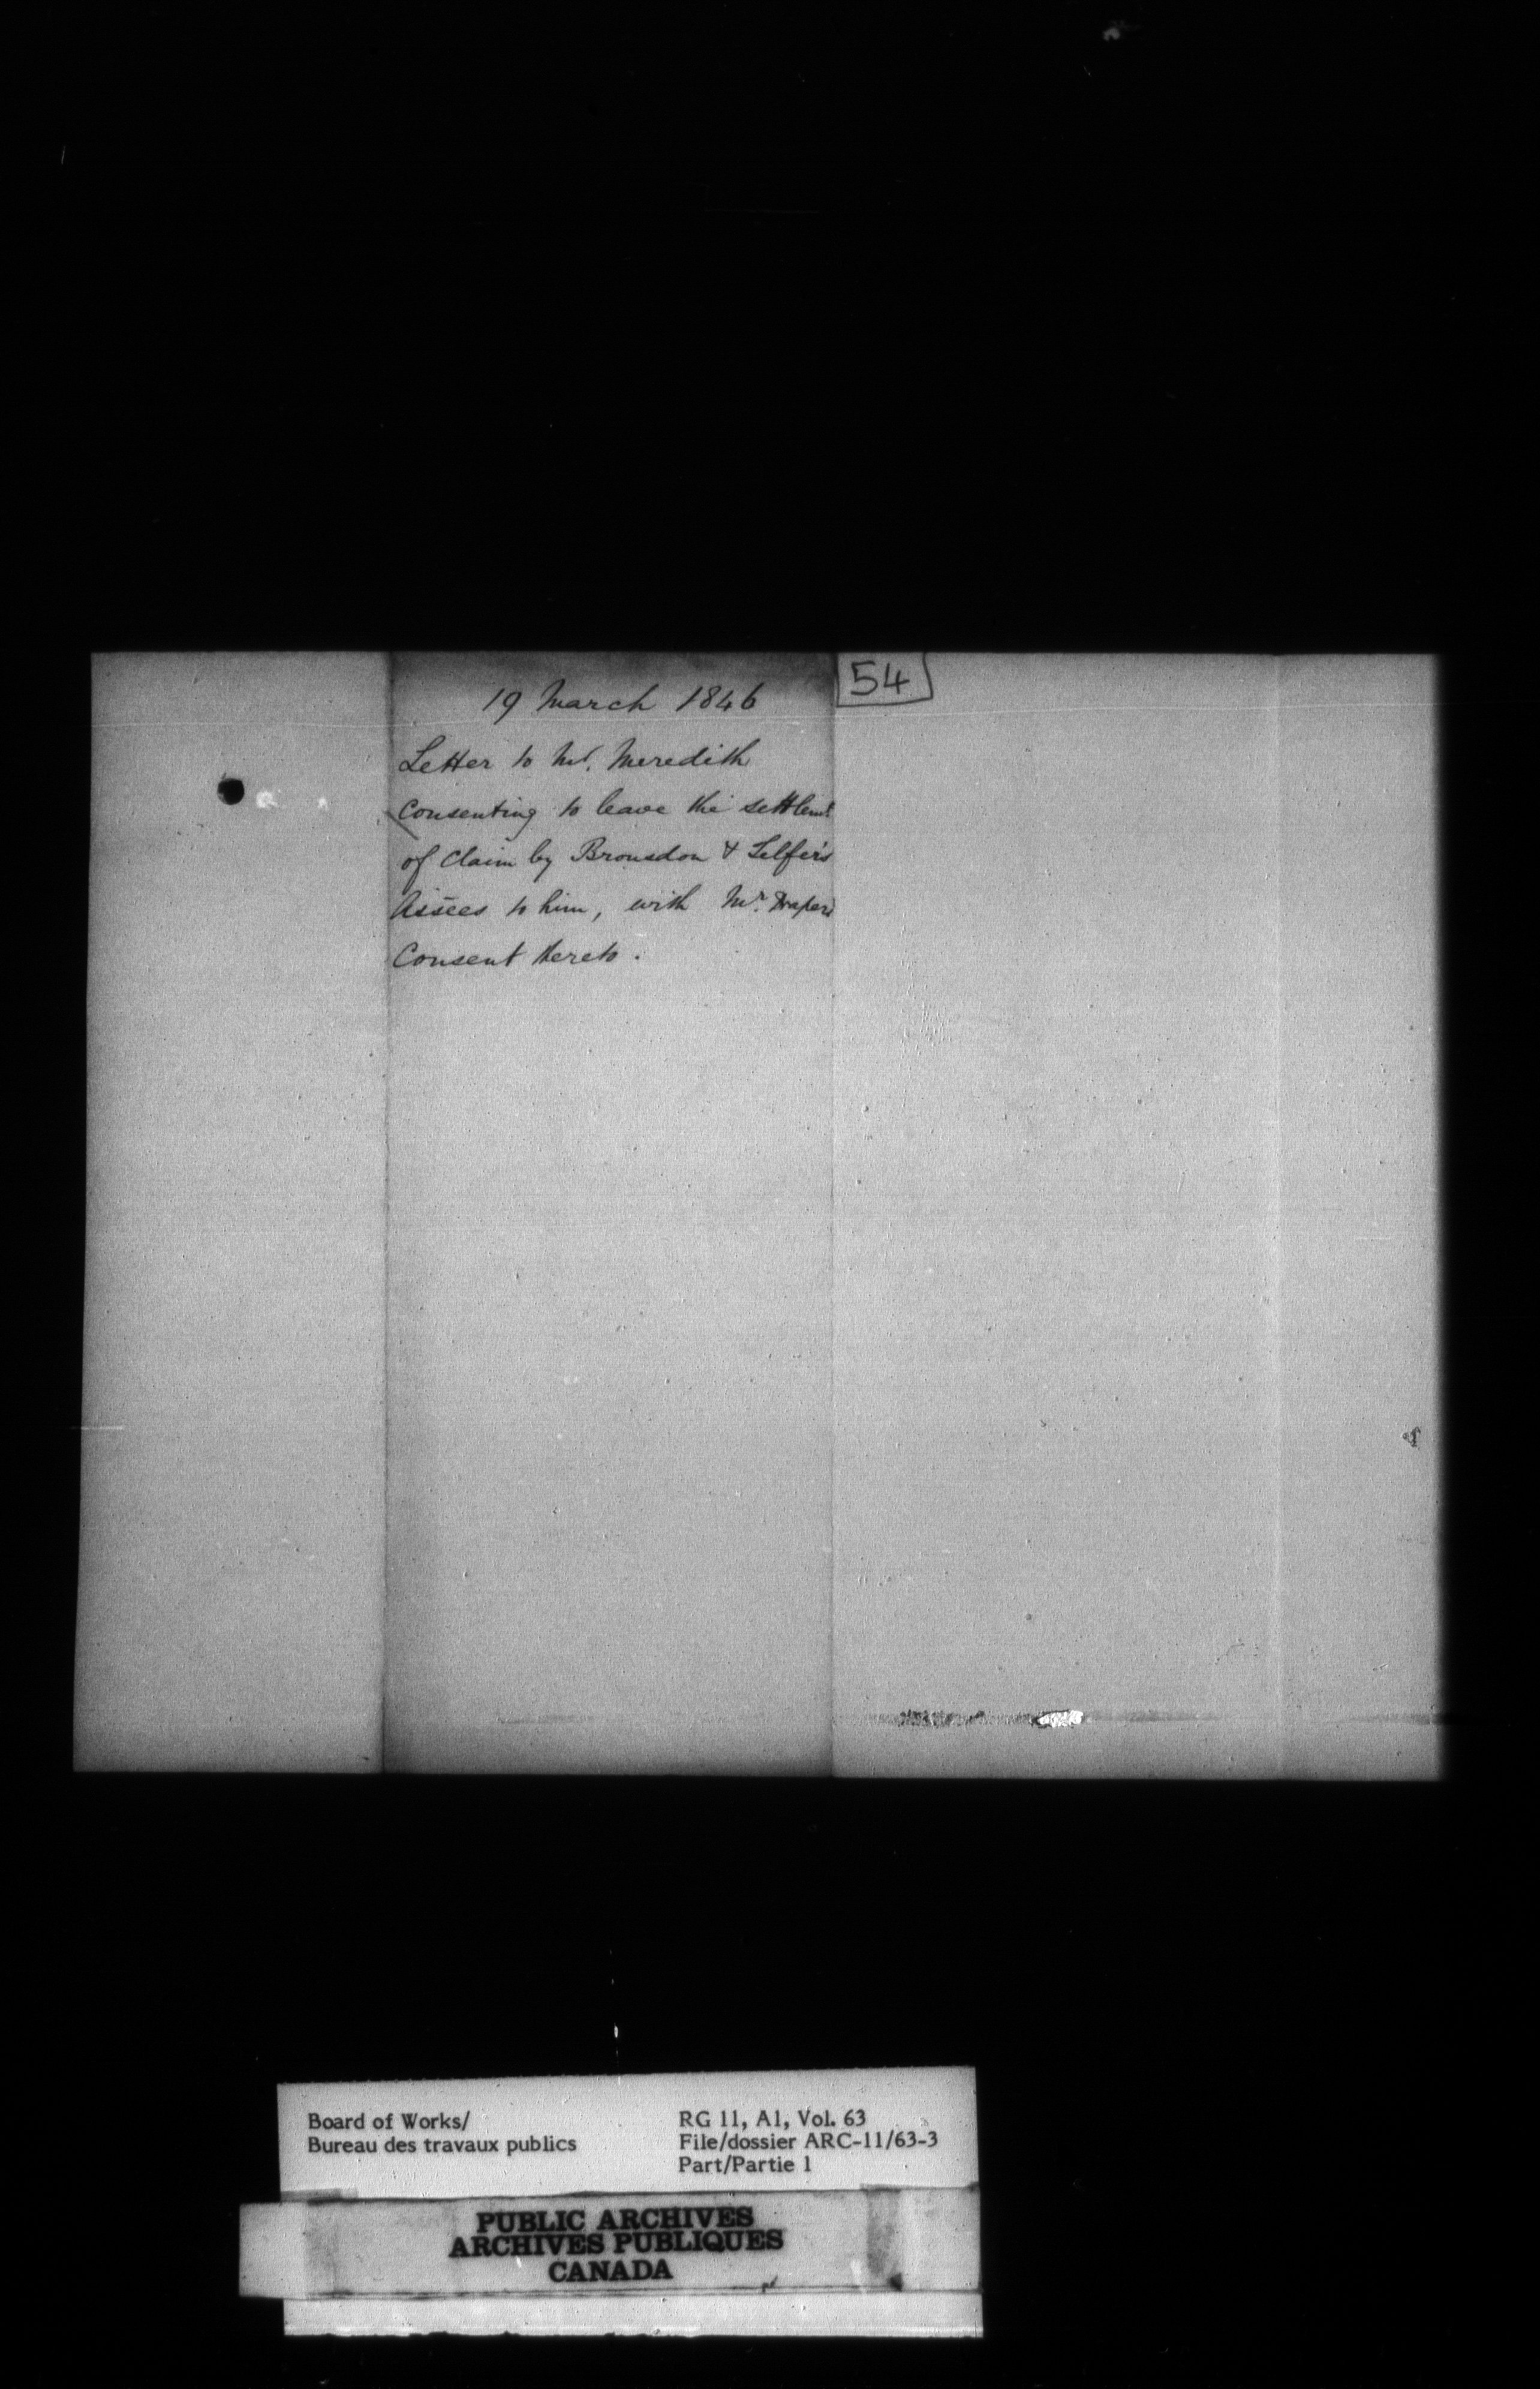 19 March 1846
54
Letter to Mr. Meredith
Consenting to leave the settlemt
of Claim by Bronsdon &
Assees to him, with Mr. Drapers
Consent thereto.
Board of Works/
Bureau des travaux publics
RG 11, A1, Vol. 63
File/dossier ARC-11/63-3
Part/Partie 1
PUBLIC ARCHIVES
ARCHIVES PUBLIQUES
CANADA